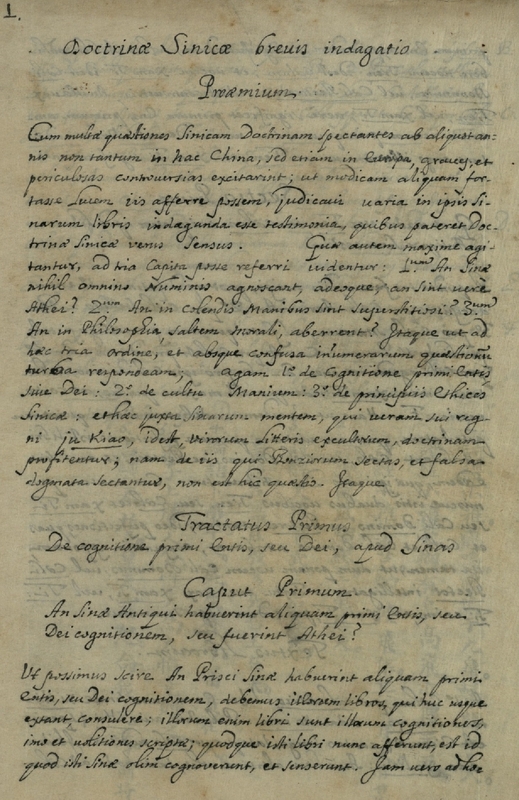 1.
Doctrinæ Sinicæ brevis indagatio
Proæmium.
Cum multæ quæstiones Sinicam Doctrinam spectantes ab aliquot an-
nis non tantum in hac China, sed etiam in Europa, graves, et
periculosas controversias excitarint; ut modicam aliquam for-
tasse lucem iis afferre possem, judicavi varia in ipsis Si-
narum libris indaganda esse testimonia, quibus pateret Doc-
trinæ Sinicæ verus sensus. Quæ autem maxime agi-
tantur, ad tria Capita posse referri videntur: 1.um An Sinæ
nihil omnino Numinis agnoscant, adeoque, an sint vere
Athei? 2.um An in colendis Manibus sint superstitiosi? 3.um
An in Philosophia, saltem morali, aberrent? Itaque ut ad
hæc tria ordine, et absque confusa innumerarum quæstionū
turba respondeam; agam 1.o de Cognitione primi Entis
sive Dei: 2.o de cultu Manium: 3.o de principiis Ethices
Sinicæ: et hæc juxta Sinarum mentem, qui veram sui reg-
ni ju Kiao, idest, virorum litteris excultorum, doctrinam
profitentur; nam de iis qui Bonziorum sectas, et falsa
dogmata sectantur, non est hic quæstio. Itaque
Tractatus Primus
De cognitione primi Entis, seu Dei, apud Sinas
Caput Primum
An Sinæ Antiqui habuerint aliquam primi Entis, seu
Dei cognitionem, seu fuerint Athei?
Ut possimus scire An Prisci Sinæ habuerint aliquam primi
Entis, seu Dei cognitionem, debemus illorum libros, qui huc usque
extant, consulere; illorum enim libri sunt illorum cognitiones,
imo et volitiones scriptæ; quodque isti libri nunc afferunt, est id
quod isti Sinæ olim cognoverunt, et senserunt. Jam vero ad hoc